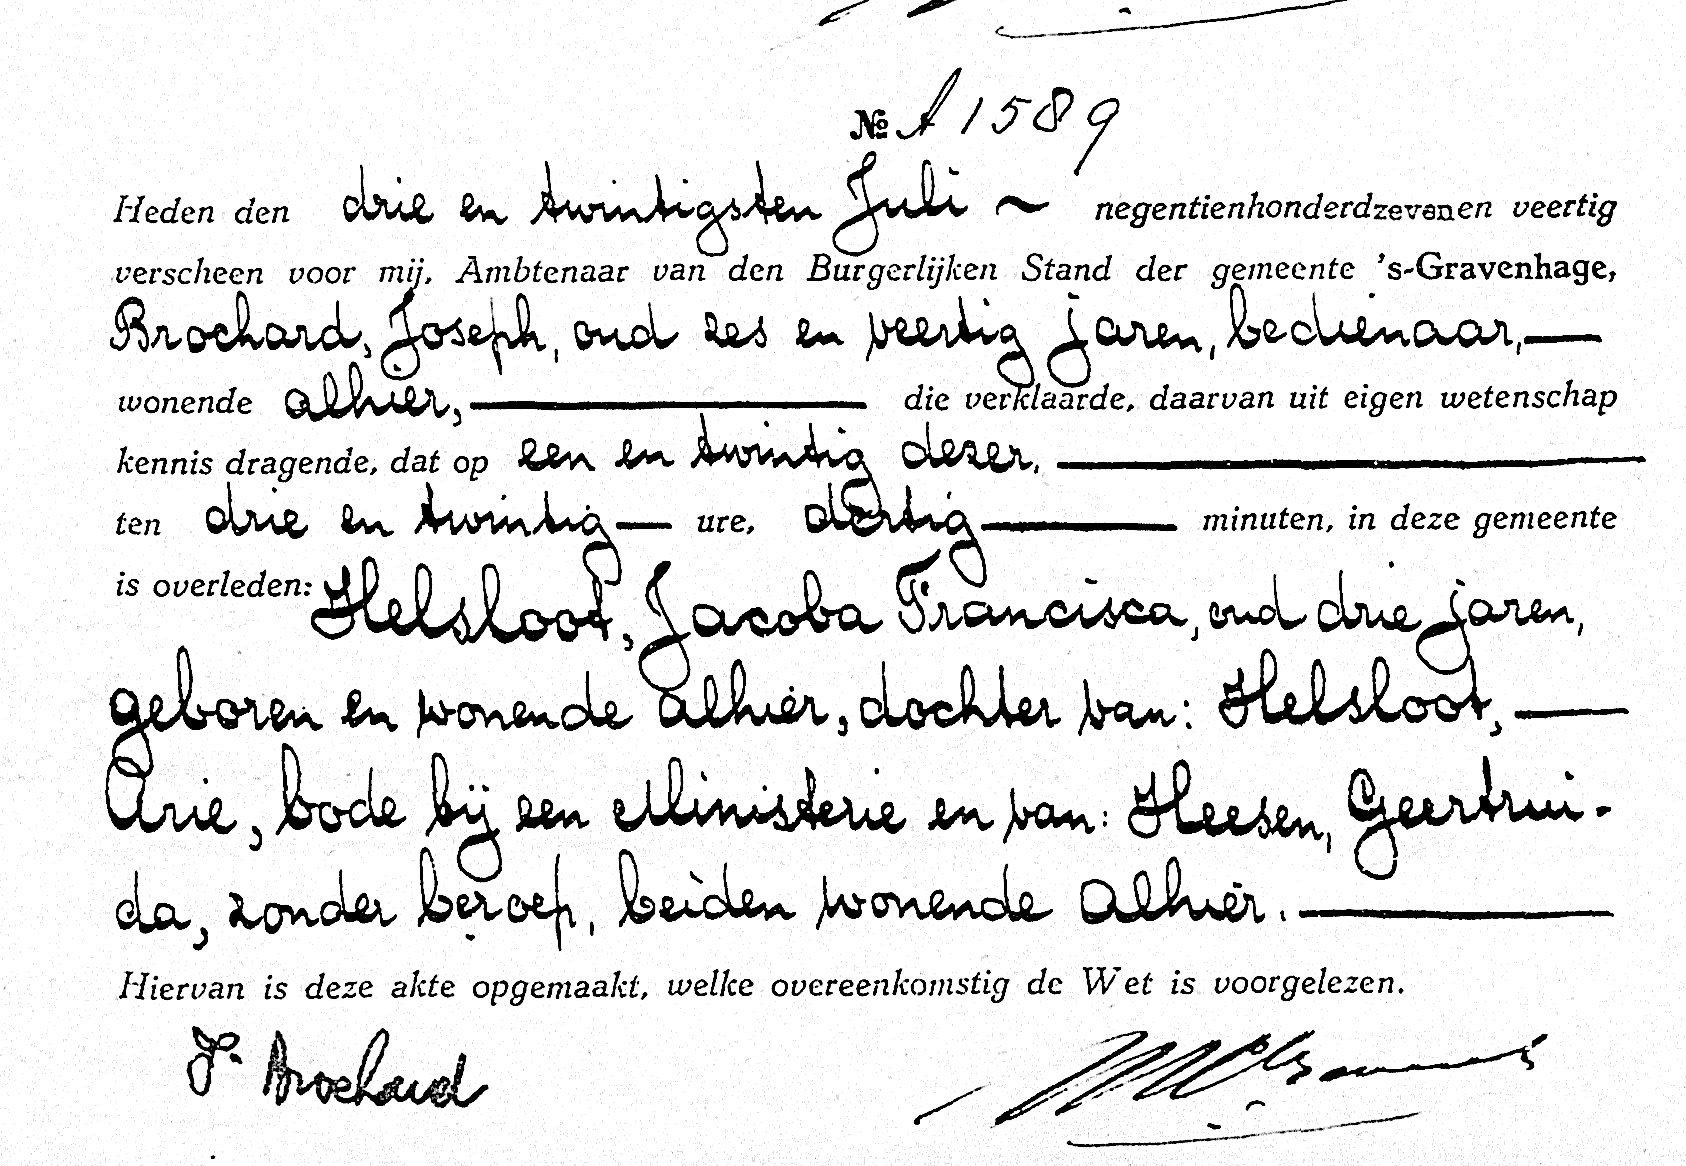 № A 1589
Heden den drie en twintigsten Juli ~ negentienhonderdzevenen veertig
verscheen voor mij, Ambtenaar van den Burgerlijken Stand der gemeente 's-Gravenhage,
Brochard, Joseph, oud zes en veertig jaren, bedienaar,—
wonende alhier,— die verklaarde, daarvan uit eigen wetenschap
kennis dragende, dat op een en twintig dezer,—
ten drie en twintig— ure, dertig— minuten, in deze gemeente
is overleden: Helsloot, Jacoba Francisca, oud drie jaren,
geboren en wonende alhier, dochter van: Helsloot,—
Arie, bode bij een Ministerie en van: Heesen, Geertrui-
da, zonder beroep, beiden wonende alhier.—
Hiervan is deze akte opgemaakt, welke overeenkomstig de Wet is voorgelezen.
Js. Brochard